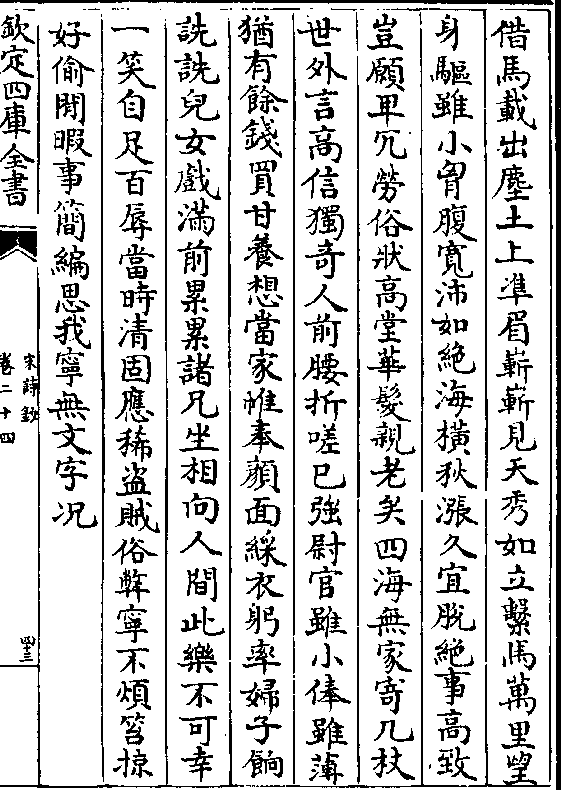 借馬載出塵土上準眉嶄嶄見天秀如立繫馬萬里望
身驅雖小胷腹寬沛如絶海橫秋漲久宜脫絶事高致
豈願卑冗勞俗狀高堂華髮親老矣四海無家寄几杖
世外言高信獨奇人前腰折嗟已強尉官雖小俸雖薄
猶有餘錢買甘養想當家帷奉顔面綵衣躬率婦子餉
詵詵兒女戲滿前累累諸兄坐相向人間此樂不可幸
一笑自足百辱當時清固應稀盜賊俗幹寧不煩笞掠
好偷閒暇事簡編思我寧無文字况
欽定四庫全書
宋詩鈔
卷二十四
四十三